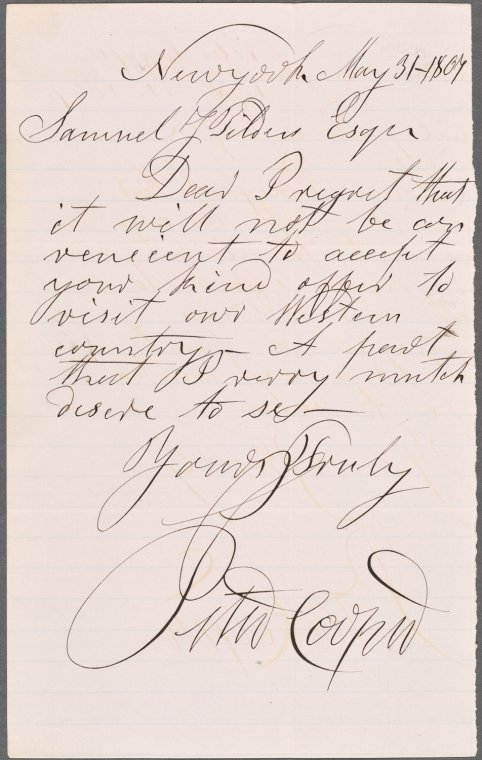 New york May 31-1867
Samuel J Tilden Esqr
Dear I regret that
it will not be con
venient to accept
your kind offer to
visit our Western
country - A part
that I verry mutch
desire to se -
Yours Truly
Peter Cooper